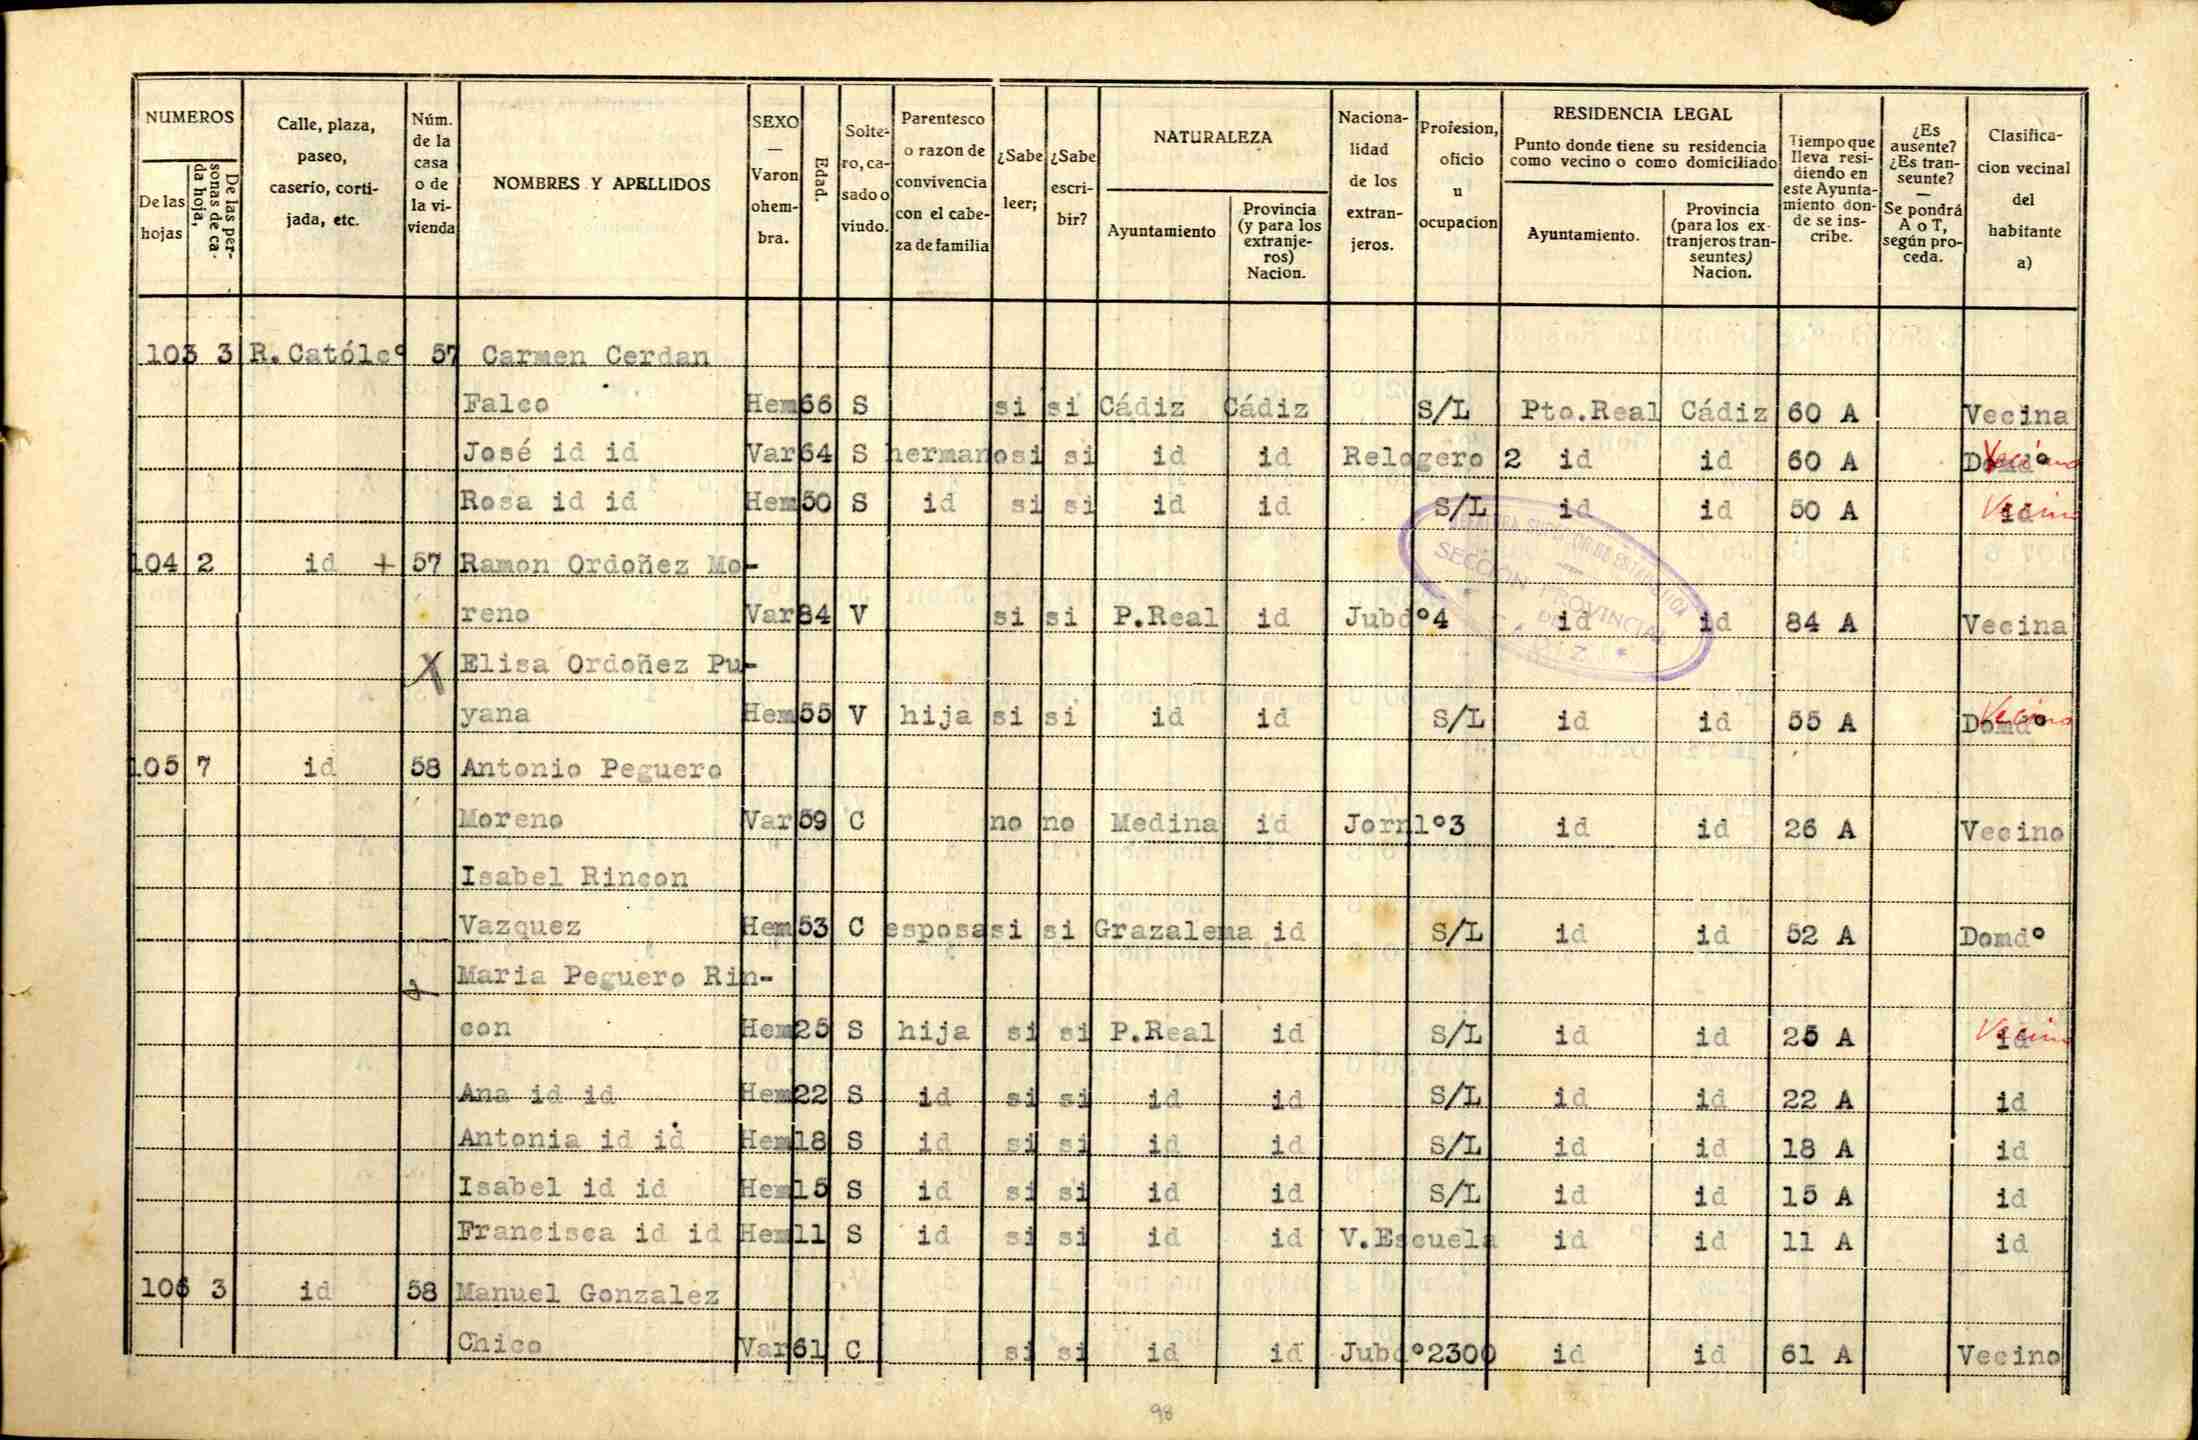 NUMEROS
De las hojas
De las personas de cada hoja,
Calle, plaza, paseo, caserio, cortijada, etc.
Núm. de la casa o de la vivienda
NOMBRES Y APELLIDOS
SEXO — Varon ohembra.
Edad.
Soltero, casado o viudo.
Parentesco o razon de convivencia con el cabeza de familia
¿Sabe leer;
¿Sabe escribir?
NATURALEZA
Ayuntamiento
Provincia (y para los extranjeros) Nacion.
Nacionalidad de los extranjeros.
Profesion, oficio u ocupacion
RESIDENCIA LEGAL
Punto donde tiene su residencia como vecino o como domiciliado
Ayuntamiento.
Provincia (para los extranjeros transeuntes) Nacion.
Tiempo que lleva residiendo en este Ayuntamiento donde se inscribe.
¿Es ausente? ¿Es transeunte? — Se pondrá A o T, según proceda.
Clasificacion vecinal del habitante a)
103 3 R.Católeº 57 Carmen Cerdan
Falco Hem 66 S si si Cádiz Cádiz S/L Pto.Real Cádiz 60 A Vecina
José id id Var 64 S hermano si si id id Relogero 2 id id 60 A Domdº Vecino
Rosa id id Hem 50 S id si si id id S/L id id 50 A id Vecino
104 2 id + 57 Ramon Ordoñez Mo-
reno Var 84 V si si P.Real id Jubdº4 id id 84 A Vecina
X Elisa Ordoñez Pu-
yana Hem 55 V hija si si id id S/L id id 55 A Domdº Vecino
105 7 id 58 Antonio Peguero
Moreno Var 59 C no no Medina id Jornlº3 id id 26 A Vecino
Isabel Rincon
Vazquez Hem 53 C esposa si si Grazalema id S/L id id 52 A Domdº
Maria Peguero Rin-
con Hem 25 S hija si si P.Real id S/L id id 25 A id Vecino
Ana id id Hem 22 S id si si id id S/L id id 22 A id
Antonia id id Hem 18 S id si si id id S/L id id 18 A id
Isabel id id Hem 15 S id si si id id S/L id id 15 A id
Francisca id id Hem 11 S id si si id id V.Escuela id id 11 A id
106 3 id 58 Manuel Gonzalez
Chico Var 61 C si si id id Jubdº2300 id id 61 A Vecino
SECCION PROVINCIAL
DE
98